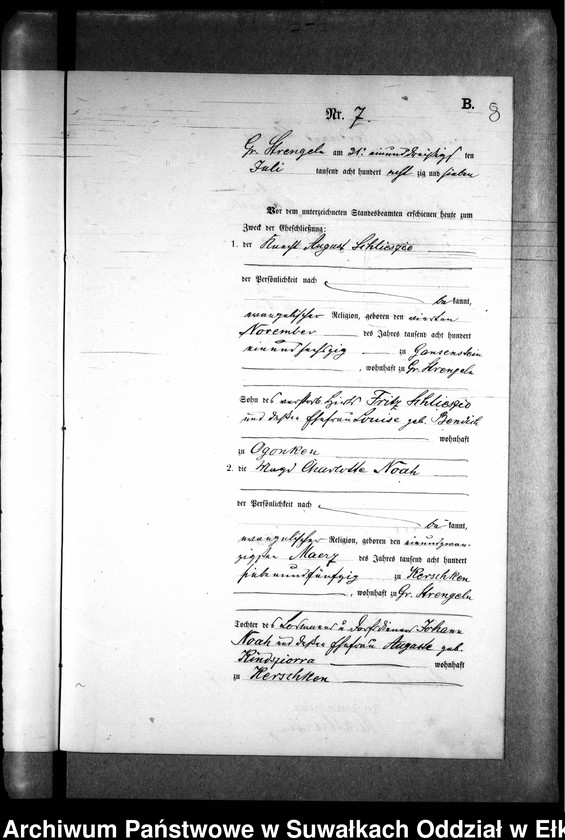 B. 8
Nr. 7.
Gr. Strengeln am 31. einunddreißigst ten
Juli tausend acht hundert acht zig und sieben
Vor dem unterzeichneten Standesbeamten erschienen heute zum
Zweck der Eheschließung:
1. der Knecht August Schlieszio
der Persönlichkeit nach
be kannt,
evangelischer Religion, geboren den vierten
November des Jahres tausend acht hundert
einundsechszig zu Gansenstein
, wohnhaft zu Gr. Strengeln
Sohn des verstorb. Hirts Fritz Schlieszio
und dessen Ehefrau Louise geb. Bendick
wohnhaft
zu Ogonken
2. die Magd Charlotte Noah
der Persönlichkeit nach
be kannt,
evangelischer Religion, geboren den einundzwan-
zigsten Maerz des Jahres tausend acht hundert
siebenundfünfzig zu Kerschken
, wohnhaft zu Gr. Strengeln
Tochter des Losmanns u Dorfdieners Johann
Noah und dessen Ehefrau Auguste geb.
Kindsziorra wohnhaft
zu Kerschken
Archiwum Państwowe w Suwałkach Oddział w Ełk